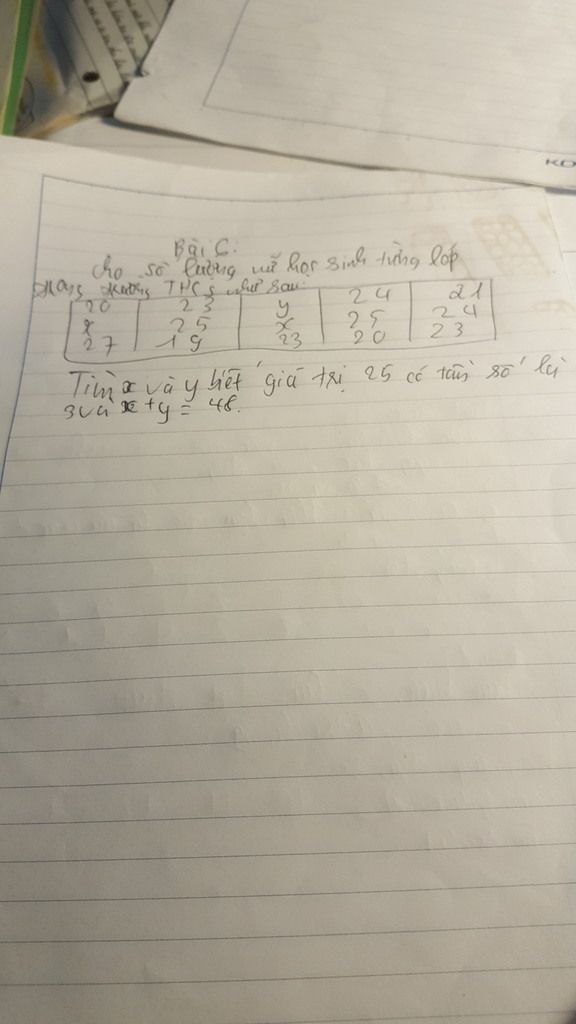 Bài 6:
cho số lượng nữ học sinh từng lớp
trong trường THCS như sau:
20 23 y 24 21
x 25 x 25 24
27 19 23 20 23
Tìm x và y biết giá trị 25 có tần số là
3 và x + y = 48.
KO